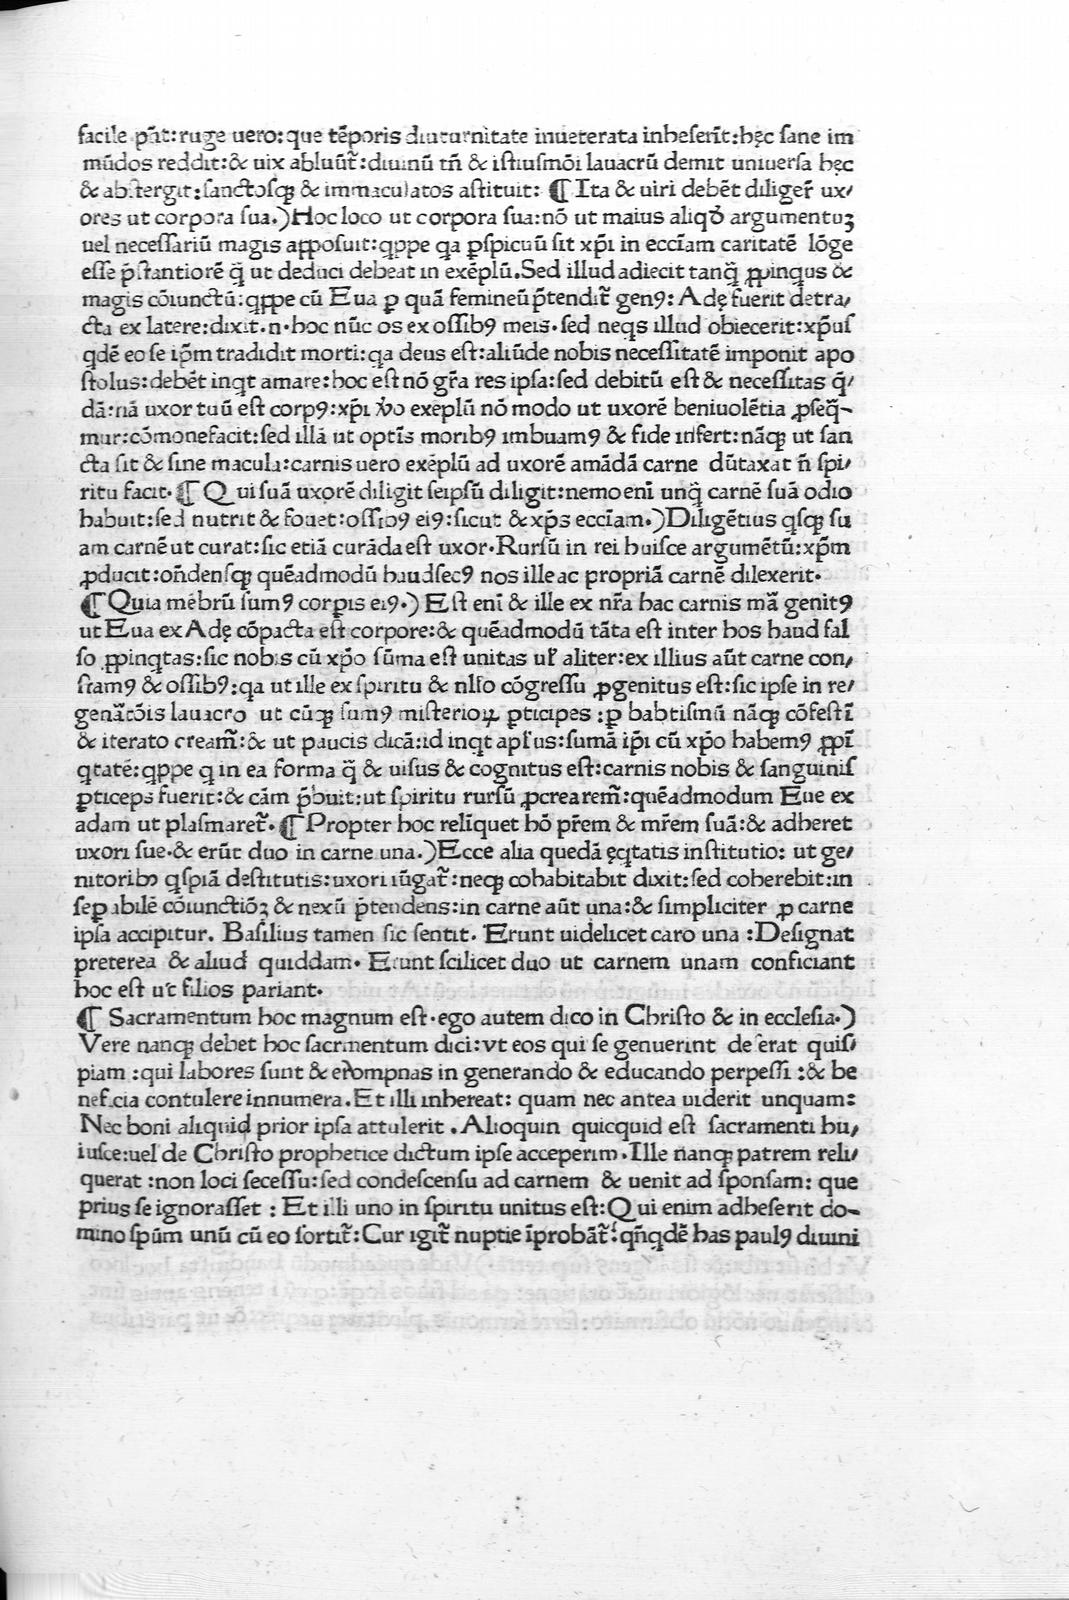 facile pn̄t: ruge uero: que tēporis diuturnitate inueterata inheserīt: hęc sane im
mūdos reddit: & uix abluūt̃: diuinū tn̄ & istiusmōi lauacrū demit uniuersa hęc
& abstergit: sanctosqꝫ & immaculatos astituit: ¶ Ita & uiri debēt diliger̃ ux/
ores ut corpora sua.) Hoc loco ut corpora sua: nō ut maius aliqđ argumentuꝫ
uel necessariū magis apposuit: qppe qa ꝑspicuū sit xp̄i in eccl̄am caritatē lōge
esse p̄stantiorē q̄̃ ut deduci debeat in exēplū. Sed illud adiecit tanq̄̃ ꝓpinqus &
magis cōiunctū: qppe cū Eua ꝑ quā femineū p̄tendit̃ genꝰ: Adę fuerit detra/
cta ex latere: dixit. n. hoc nūc os ex ossibꝰ meis. sed neqs illud obiecerit: xp̄us
qdē eo se ip̄m tradidit morti: qa deus est: aliūde nobis necessitatē imponit apo
stolus: debēt inqt amare: hoc est nō gr̄a res ipsa: sed debitū est & necessitas q̄/
dā: nā uxor tuū est corpꝰ: xp̄i v̾o exēplū nō modo ut uxorē beniuolētia ꝓseq̄-
mur: cōmonefacit: sed illā ut optīs moribꝰ imbuamꝰ & fide infert: nāqꝫ ut san
cta sit & sine macula: carnis uero exēplū ad uxorē amādā carne dūtaxat n̄ spi/
ritu facit. ¶ Qui suā uxorē diligit seipsū diligit: nemo eni unq̄̃ carnē suā odio
habuit: sed nutrit & fouet: ossibꝰ eiꝰ: sicut & xp̄s eccl̄am.) Diligētius qsqꝫ su
am carnē ut curat: sic etiā curāda est uxor. Rursū in rei huisce argumētū: xp̄m
ꝓducit: on̄densqꝫ quēadmodū haudsecꝰ nos ille ac propriā carnē dilexerit.
¶ Quia mēbrū sumꝰ corꝑis eiꝰ.) Est eni & ille ex nr̄a hac carnis mā genitꝰ
ut Eua ex Adę cōpacta est corpore: & quēadmodū tāta est inter hos haud fal
so ꝓpinqtas: sic nobis cū xp̄o sūma est unitas ul̄ aliter: ex illius aūt carne con/
stamꝰ & ossibꝰ: qa ut ille ex spiritu & nl̄lo cōgressu ꝓgenitus est: sic ipse in re/
gen̄atōis lauacro ut cūqꝫ sumꝰ misterioꝝ ꝑticipes: ꝑ babtismū nāqꝫ cōfestī
& iterato cream̃: & ut paucis dicā: id inqt apl̄us: sumā ip̄i cū xp̄o habemꝰ ꝓpī
qtatē: qppe q in ea forma q̄̃ & uisus & cognitus est: carnis nobis & sanguinis
ꝑticeps fuerit: & cām p̄buit: ut spiritu rursū ꝓcrearem̃: quēadmodum Eue ex
adam ut plasmaret̃. ¶ Propter hoc relīquet hō pr̄em & mr̄em suā: & adheret
uxori sue. & erūt duo in carne una.) Ecce alia quedā ęqtatis institutio: ut ge/
nitoribꝰ qspiā destitutis: uxori iūgat̃: neqꝫ cohabitabit dixit: sed coherebit: in
seꝑabilē cōiunctiōꝫ & nexū p̄tendens: in carne aūt una: & simpliciter ꝓ carne
ipsa accipitur. Basilius tamen sic sentit. Erunt uidelicet caro una: Designat
preterea & aliud quiddam. Erunt scilicet duo ut carnem unam conficiant
hoc est ut filios pariant.
¶ Sacramentum hoc magnum est. ego autem dico in Christo & in ecclesia.)
Vere nanqꝫ debet hoc sacrmentum dici: vt eos qui se genuerint deserat quis/
piam: qui labores sunt & erōmpnas in generando & educando perpessi: & be
neficia contulere innumera. Et illi inhereat: quam nec antea uiderit unquam:
Nec boni aliquid prior ipsa attulerit. Alioquin quicquid est sacramenti hu/
iusce: uel de Christo prophetice dictum ipse acceperim. Ille nanqꝫ patrem reli/
querat: non loci secessu: sed condescensu ad carnem & uenit ad sponsam: que
prius se ignorasset: Et illi uno in spiritu unitus est: Qui enim adheserit do-
mino spūm unū cū eo sortit̃: Cur igit̃ nuptie īprobāt̃: qn̄qdē has paulꝰ diuini